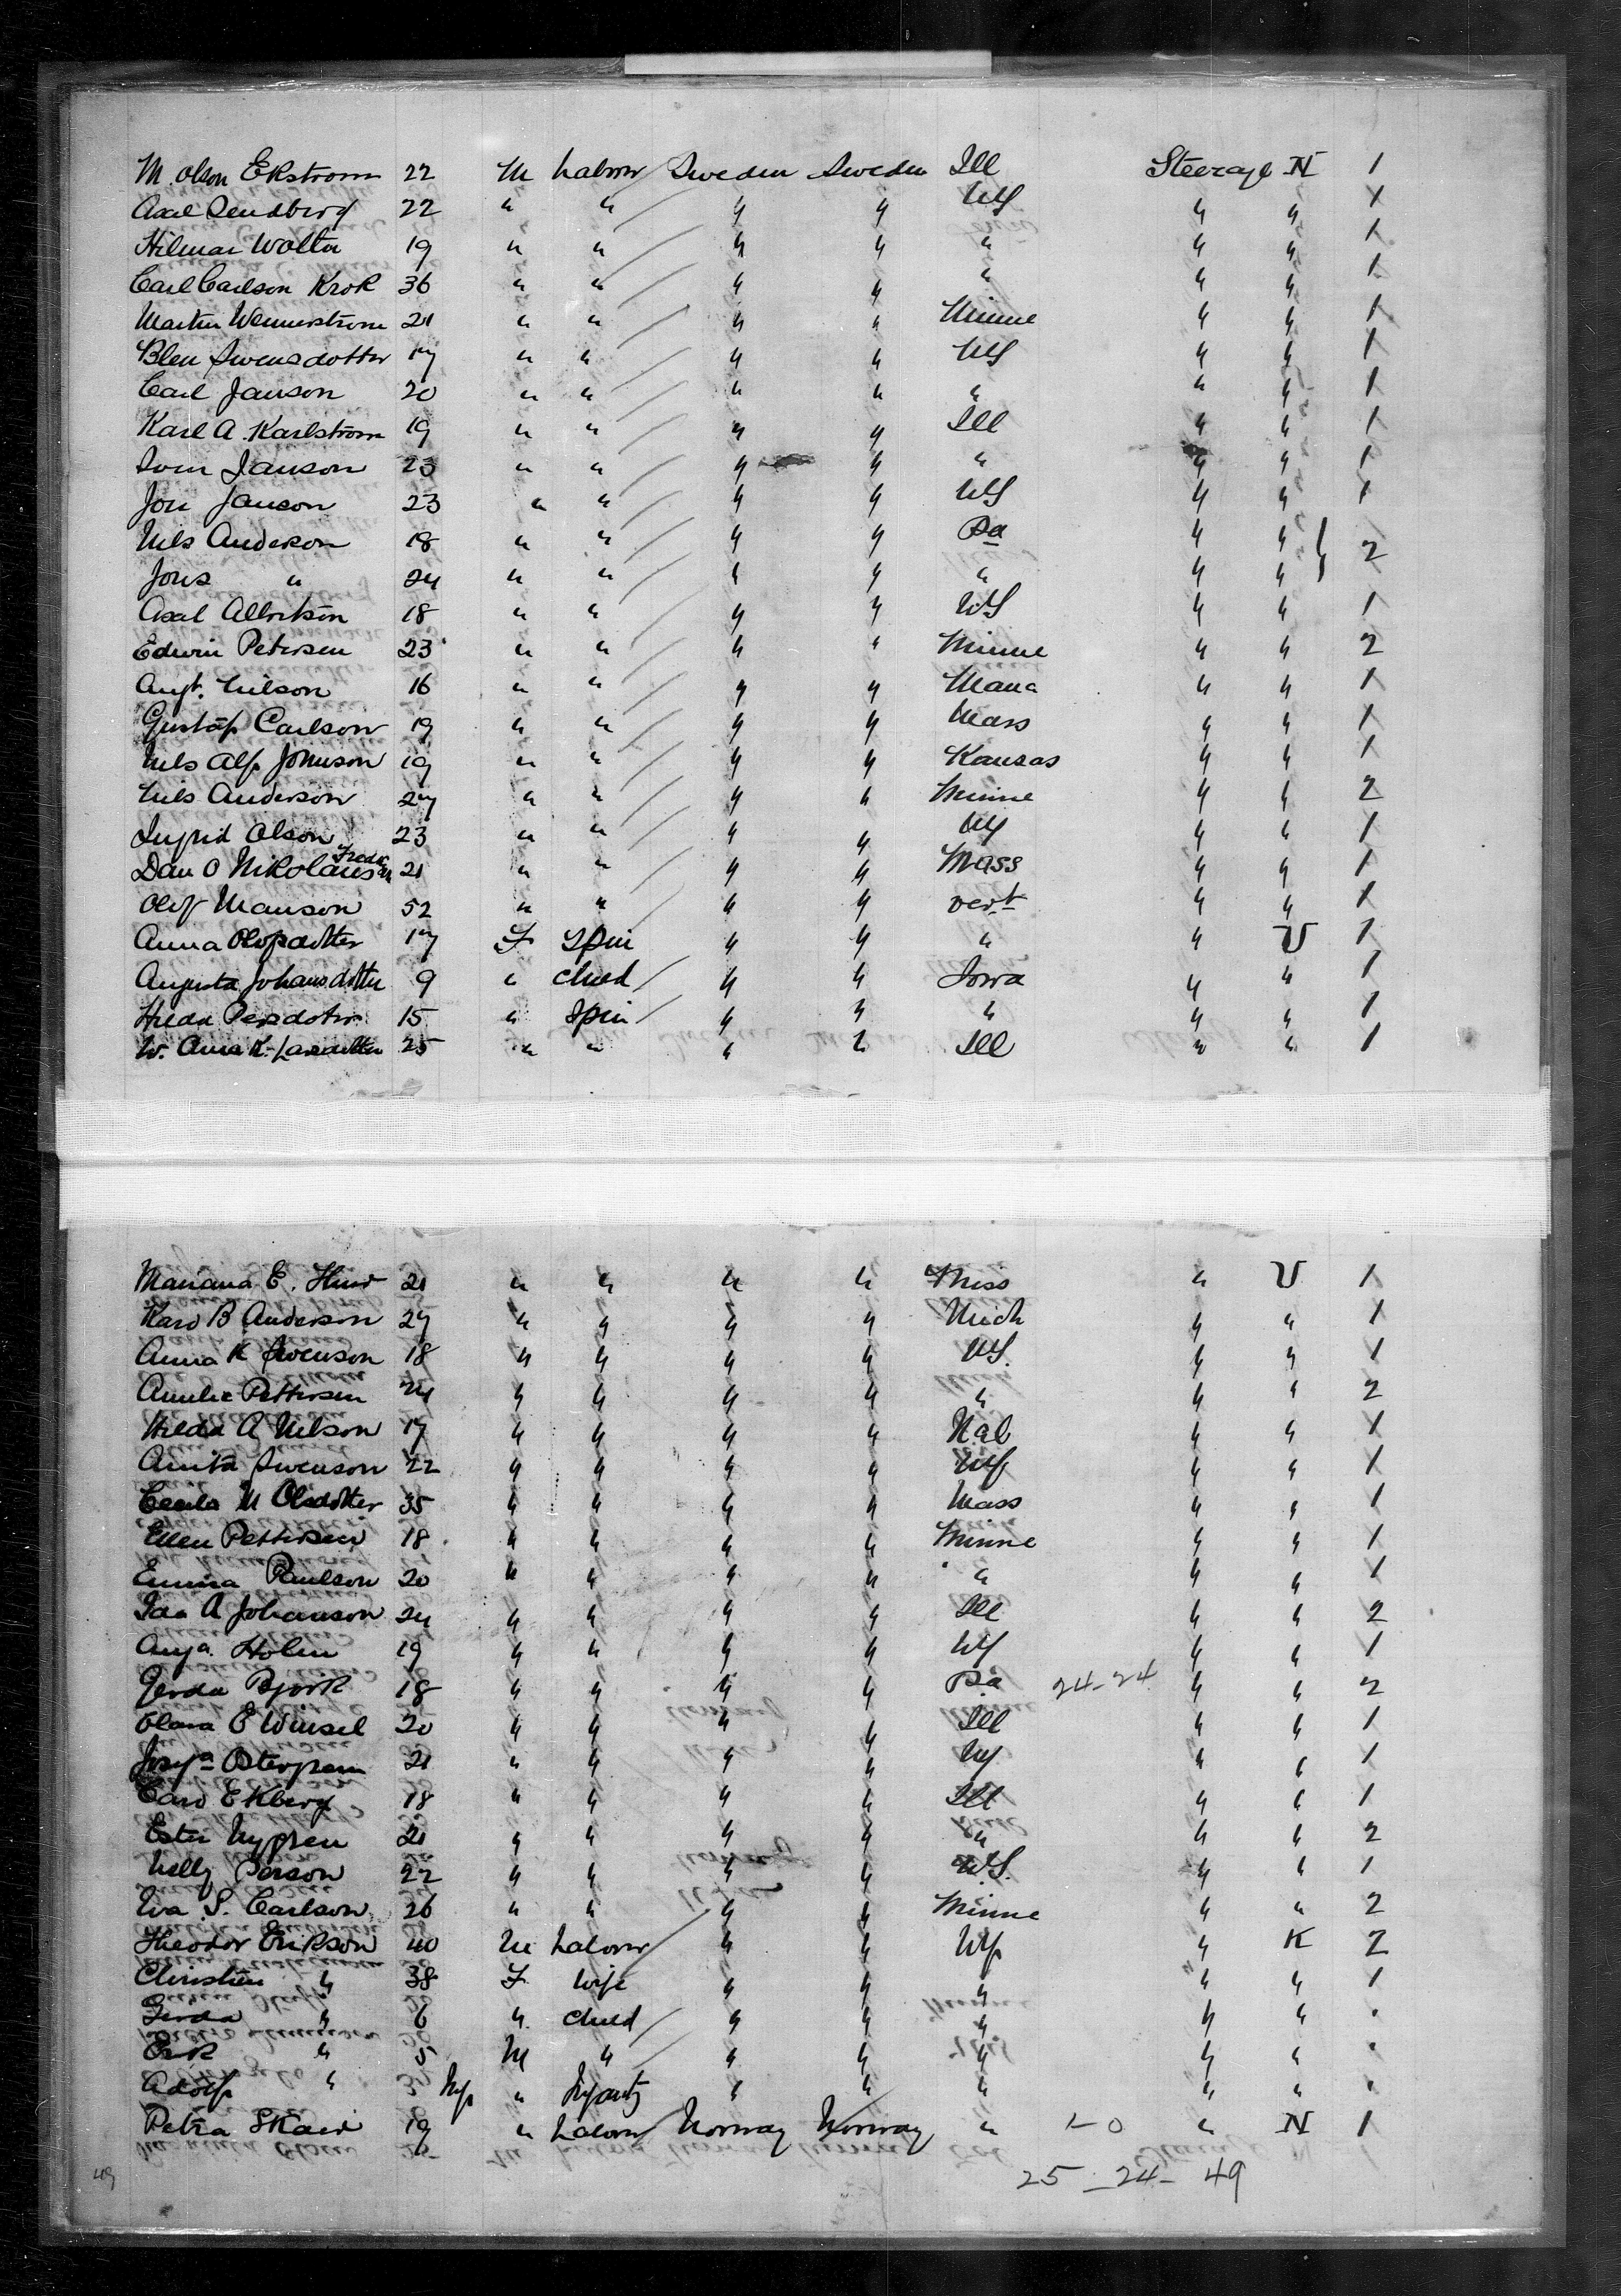 M. Olson Ekstrom 22 M Labour Sweden Sweden Ill Steerage N 1
Axel Sendberg 22 " " " " NY " " 1
Hilmar Wolter 19 " " " " " " " 1
Carl Carlson Krok 36 " " " " " " " 1
Martin Wennerstrom 21 " " " " Minne " " 1
Blen Swensdotter 17 " " " " NY " " 1
Carl Janson 20 " " " " " " " 1
Karl A. Karlstrom 19 " " " " Ill " " 1
Sven Janson 23 " " " " " " " 1
Jon Janson 23 " " " " NY " " 1
Nils Anderson 18 " " " " Pa " " 2
Jons " 24 " " " " " " "
Axel Albertson 18 " " " " NY " " 1
Edwin Petersen 23 " " " " Minne " " 2
Augt. Nilson 16 " " " " " " 1
Gustaf Carlson 19 " " " " Mass " " 1
Nils Alf. Johnson 19 " " " " Kansas " " 1
Nils Anderson 27 " " " " Minne " " 2
Ingrid Olson 23 " " " " NY " " 1
Dan O Nikolaus 21 " " " " Mass " " 1
Olof Manson 52 " " " " Vert " " 1
Anna Olofsdotter 17 F Spin " " " " U 1
Augusta Johansdotter 9 " Child " " Iowa " " 1
Hilda Persdotter 15 " Spin " " " " " 1
W. Anna K. Larsdotter 25 " " " " Ill " " 1
Mariana E. 21 " " " " Miss " U 1
Karo B Anderson 27 " " " " Mich " " 1
Anna K Swenson 18 " " " " NY. " " 1
Amelie Pettersen 24 " " " " " " " 2
Hilda A Nilson 17 " " " " Nab " " 1
Anita Swenson 22 " " " " NY " " 1
Cecila M Olsdotter 35 " " " " Mass " " 1
Ellen Pettersen 18 " " " " Minne " " 1
Emma Paulson 20 " " " " " " " 1
Ida A Johanson 24 " " " " Ill " " 2
Auga. Holm 19 " " " " NY " " 1
Gerda Bjork 18 " " " " Pa 24-24 " " 2
Clara E Winsel 20 " " " " Ill " " 1
Josfa Ostergren 21 " " " " NY " " 1
Caro Ekberg 18 " " " " Ill " " 1
Ester Nygren 21 " " " " " " " 2
Nelly Person 22 " " " " NY. " " 1
Eva S. Carlson 26 " " " " Minne " " 2
Theodor Erikson 40 M Labour " " NY " K 2
Christin " 38 F Wife " " " " " 1
Gerda " 6 " Child " " " " "
Erik " 5 M " " " " " "
Adolf " " Infant " " " " "
Petra Skau 19 " Labour Norway Norway " 1-0 " N 1
25 - 24 - 49
49